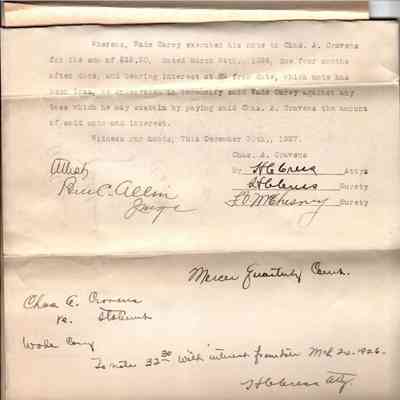 Whereas, Wade Carey executed his note to Chas. A. Cravens
for the sum of $32.50, dated March 24th., 1926, due four months
after date, and bearing interest at 6% from date, which note has
been lost, we undertake to indemnify said Wade Carey against any
loss which he may sustain by paying said Chas. A. Cravens the amount
of said note and interest.
Witness our hands, This December 30th., 1927.
Chas. A. Cravens
By Attys
Surety
Surety
Attest
Ben C. Allin
Judge
Mercer Quarterly Court.
Chas A. Cravens
vs.
Wade Carey
To note 32 50 with interest from Mch 24-1926.
Atty.